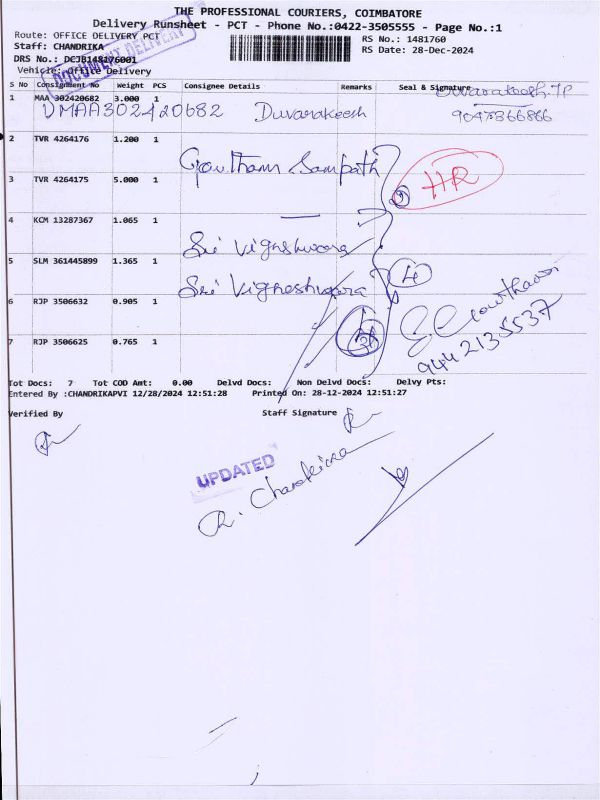 THE PROFESSIONAL COURIERS, COIMBATORE
Delivery Runsheet - PCT - Phone No.:0422-3505555 - Page No.:1
Route: OFFICE DELIVERY PCT
RS No.: 1481760
Staff: CHANDRIKA
RS Date: 28-Dec-2024
DRS No.: DCJB148176001
Vehicle: Office Delivery
DOCUMENT DELIVERY
S No Consignment No Weight PCS Consignee Details Remarks Seal & Signature
1 MAA 302420682 3.000 1
VMAA302420682 Duvarakeesh
Duvarakeesh.TP
9047366866
2 TVR 4264176 1.200 1
Gowtham Sampath
HR
3 TVR 4264175 5.000 1
4 KCM 13287367 1.065 1
Sri Vigneshwara
5 SLM 361445899 1.365 1
Sri Vigneshwara
4
6 RJP 3506632 0.905 1
9442135537
7 RJP 3506625 0.765 1
Tot Docs: 7 Tot COD Amt: 0.00 Delvd Docs: Non Delvd Docs: Delvy Pts:
Entered By :CHANDRIKAPVI 12/28/2024 12:51:28 Printed On: 28-12-2024 12:51:27
Verified By Staff Signature
UPDATED
R. Chandrika